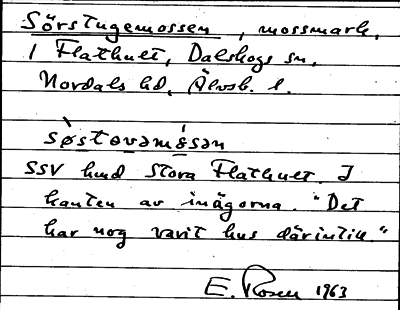 Sörstugemossen, mossmark,
1 Flathult, Dalskogs sn,
Nordals hd, Älvsb. l.
sø̀stəvəmɷ́sən
SSV hmd Stora Flathult. I
kanten av inägorna. "Det
har nog varit hus därintill."
E. Rosen 1963